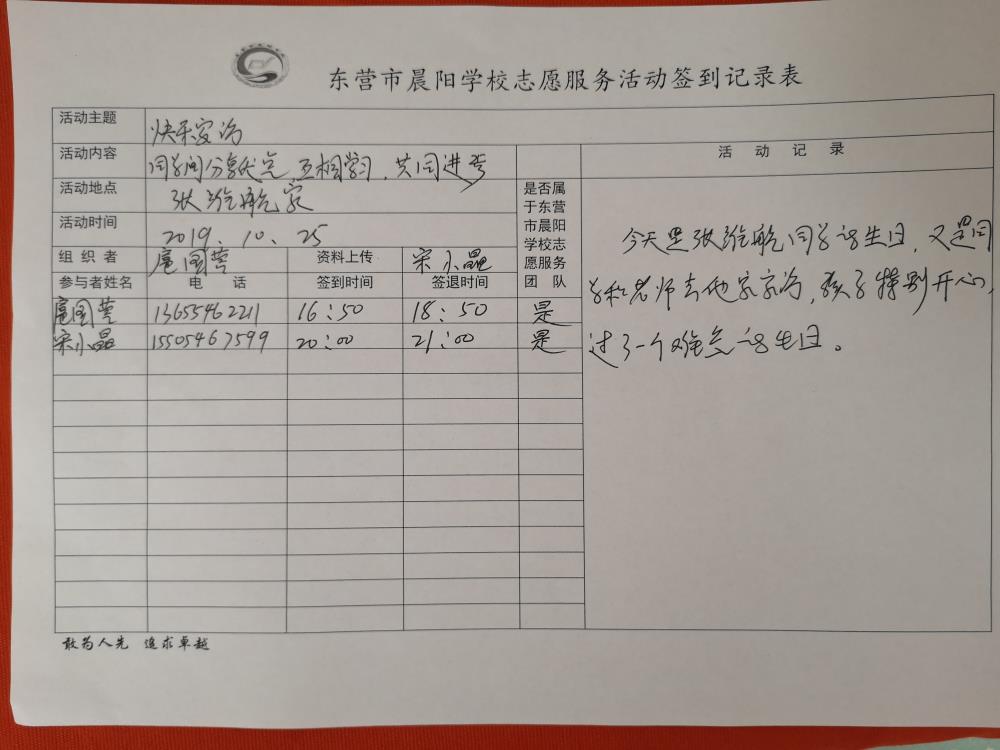 东营市晨阳学校志愿服务活动签到记录表
活动主题 快乐家访
活动内容 同学间分享优点,互相学习,共同进步
活动地点 张皓航家
活动时间 2019.10.25
组织者 扈图营 资料上传 宋小晶
是否属于东营市晨阳学校志愿服务团队
参与者姓名 电话 签到时间 签退时间
扈图营 13655462211 16:50 18:50 是
宋小晶 15505467599 20:00 21:00 是
活动记录
今天是张皓航同学的生日,又是同
学和老师去他家家访,孩子特别开心,
过了一个难忘的生日。
敢为人先 追求卓越